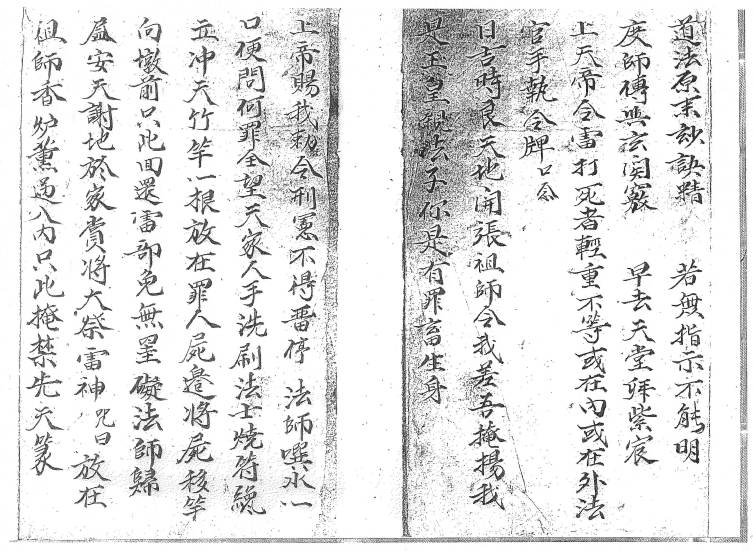 道法原来妙訣精　若無指示不能明
度師傳與玄関竅　早去天堂拜紫宸
上天帝令雷打死者輕重不等或在內或在外法
官手執令牌 口念
日吉時良天地開張祖師令我差吾掩揚我
是玉皇親法子你是有罪畜生身
上帝賜我勅令刑憲不得畱停　法師噀水一
口便問何罪全望天家人手洗刷法士燒符繞
立冲天竹竿一根放在罪人屍邉將屍移竿
向墩前只此回還雷部免無罣礙法師歸
壇安天謝地於家賞將大祭雷神 咒曰 放在
祖師香炉薰過八內只此掩禁先天篆